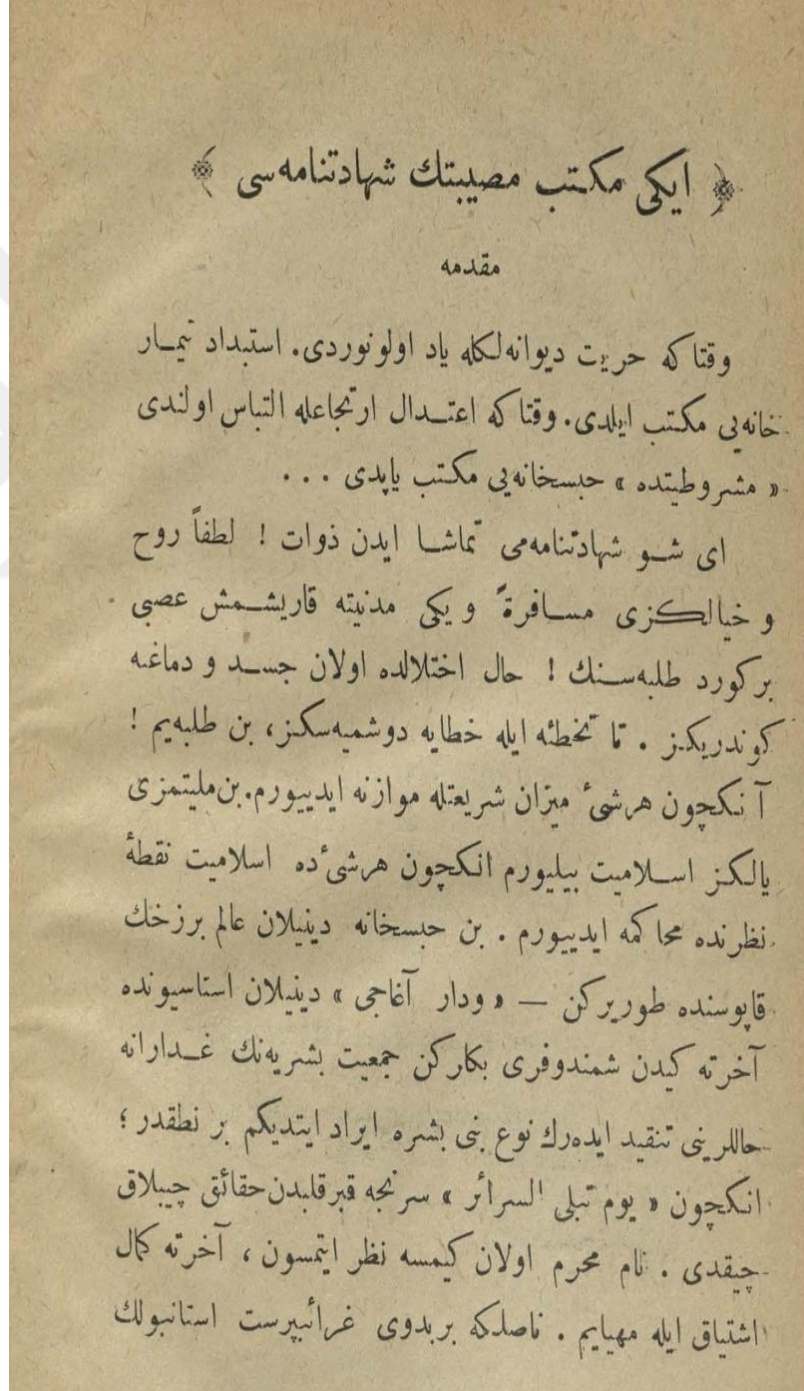 ﴿ ایکی مکتب مصیبتك شهادتنامه‌سی ﴾
مقدمه
وقتا که حریت دیوانه‌لکله یاد اولونوردی. استبداد تیمـار
خانه‌یی مکتب ایلدی. وقتا که اعتـدال ارتجاعله التباس اولندی
« مشروطیتده » حبسخانه‌یی مکتب یاپدی . . .
ای شـو شهادتنامه‌می تماشـا ایدن ذوات ! لطفاً روح
و خیالکزی مسـافرةً و یکی مدنیته قاریشـمش عصبی
بر کورد طلبه‌سـنك ! حال اختلالده اولان جسـد و دماغـه
کوندریکز . تا تخطئه ایله خطایه دوشمیه‌سکز، بن طلبه‌یم !
آ نکچون هرشیٔ میزان شریعتله موازنه ایدییورم. بن ملیتمزی
یالکز اسـلامیت بیلیورم انکچون هرشیٔ ده اسلامیت نقطهٔ
نظرنده محاکمه ایدییورم . بن حبسخانه دینیلان عالم برزخك
قاپوسنده طوریرکن — « ودار آغاجی » دینیلان استاسیونده
آخرته کیدن شمندوفری بکلرکن جمعیت بشریه‌نك غـدارانه
حاللرینی تنقید ایده‌رك نوع بنی بشره ایراد ایتدیکم بر نطقدر ؛
انکچون « یوم تبلی السرائر » سرنجه قبرقلبدن حقائق چیبلاق
چیقدی . نام محرم اولان کیمسه نظر ایتمسون ، آخرته کمال
اشتیاق ایله مهیایم . ناصلکه بر بدوی غرائبپرست استانبولك